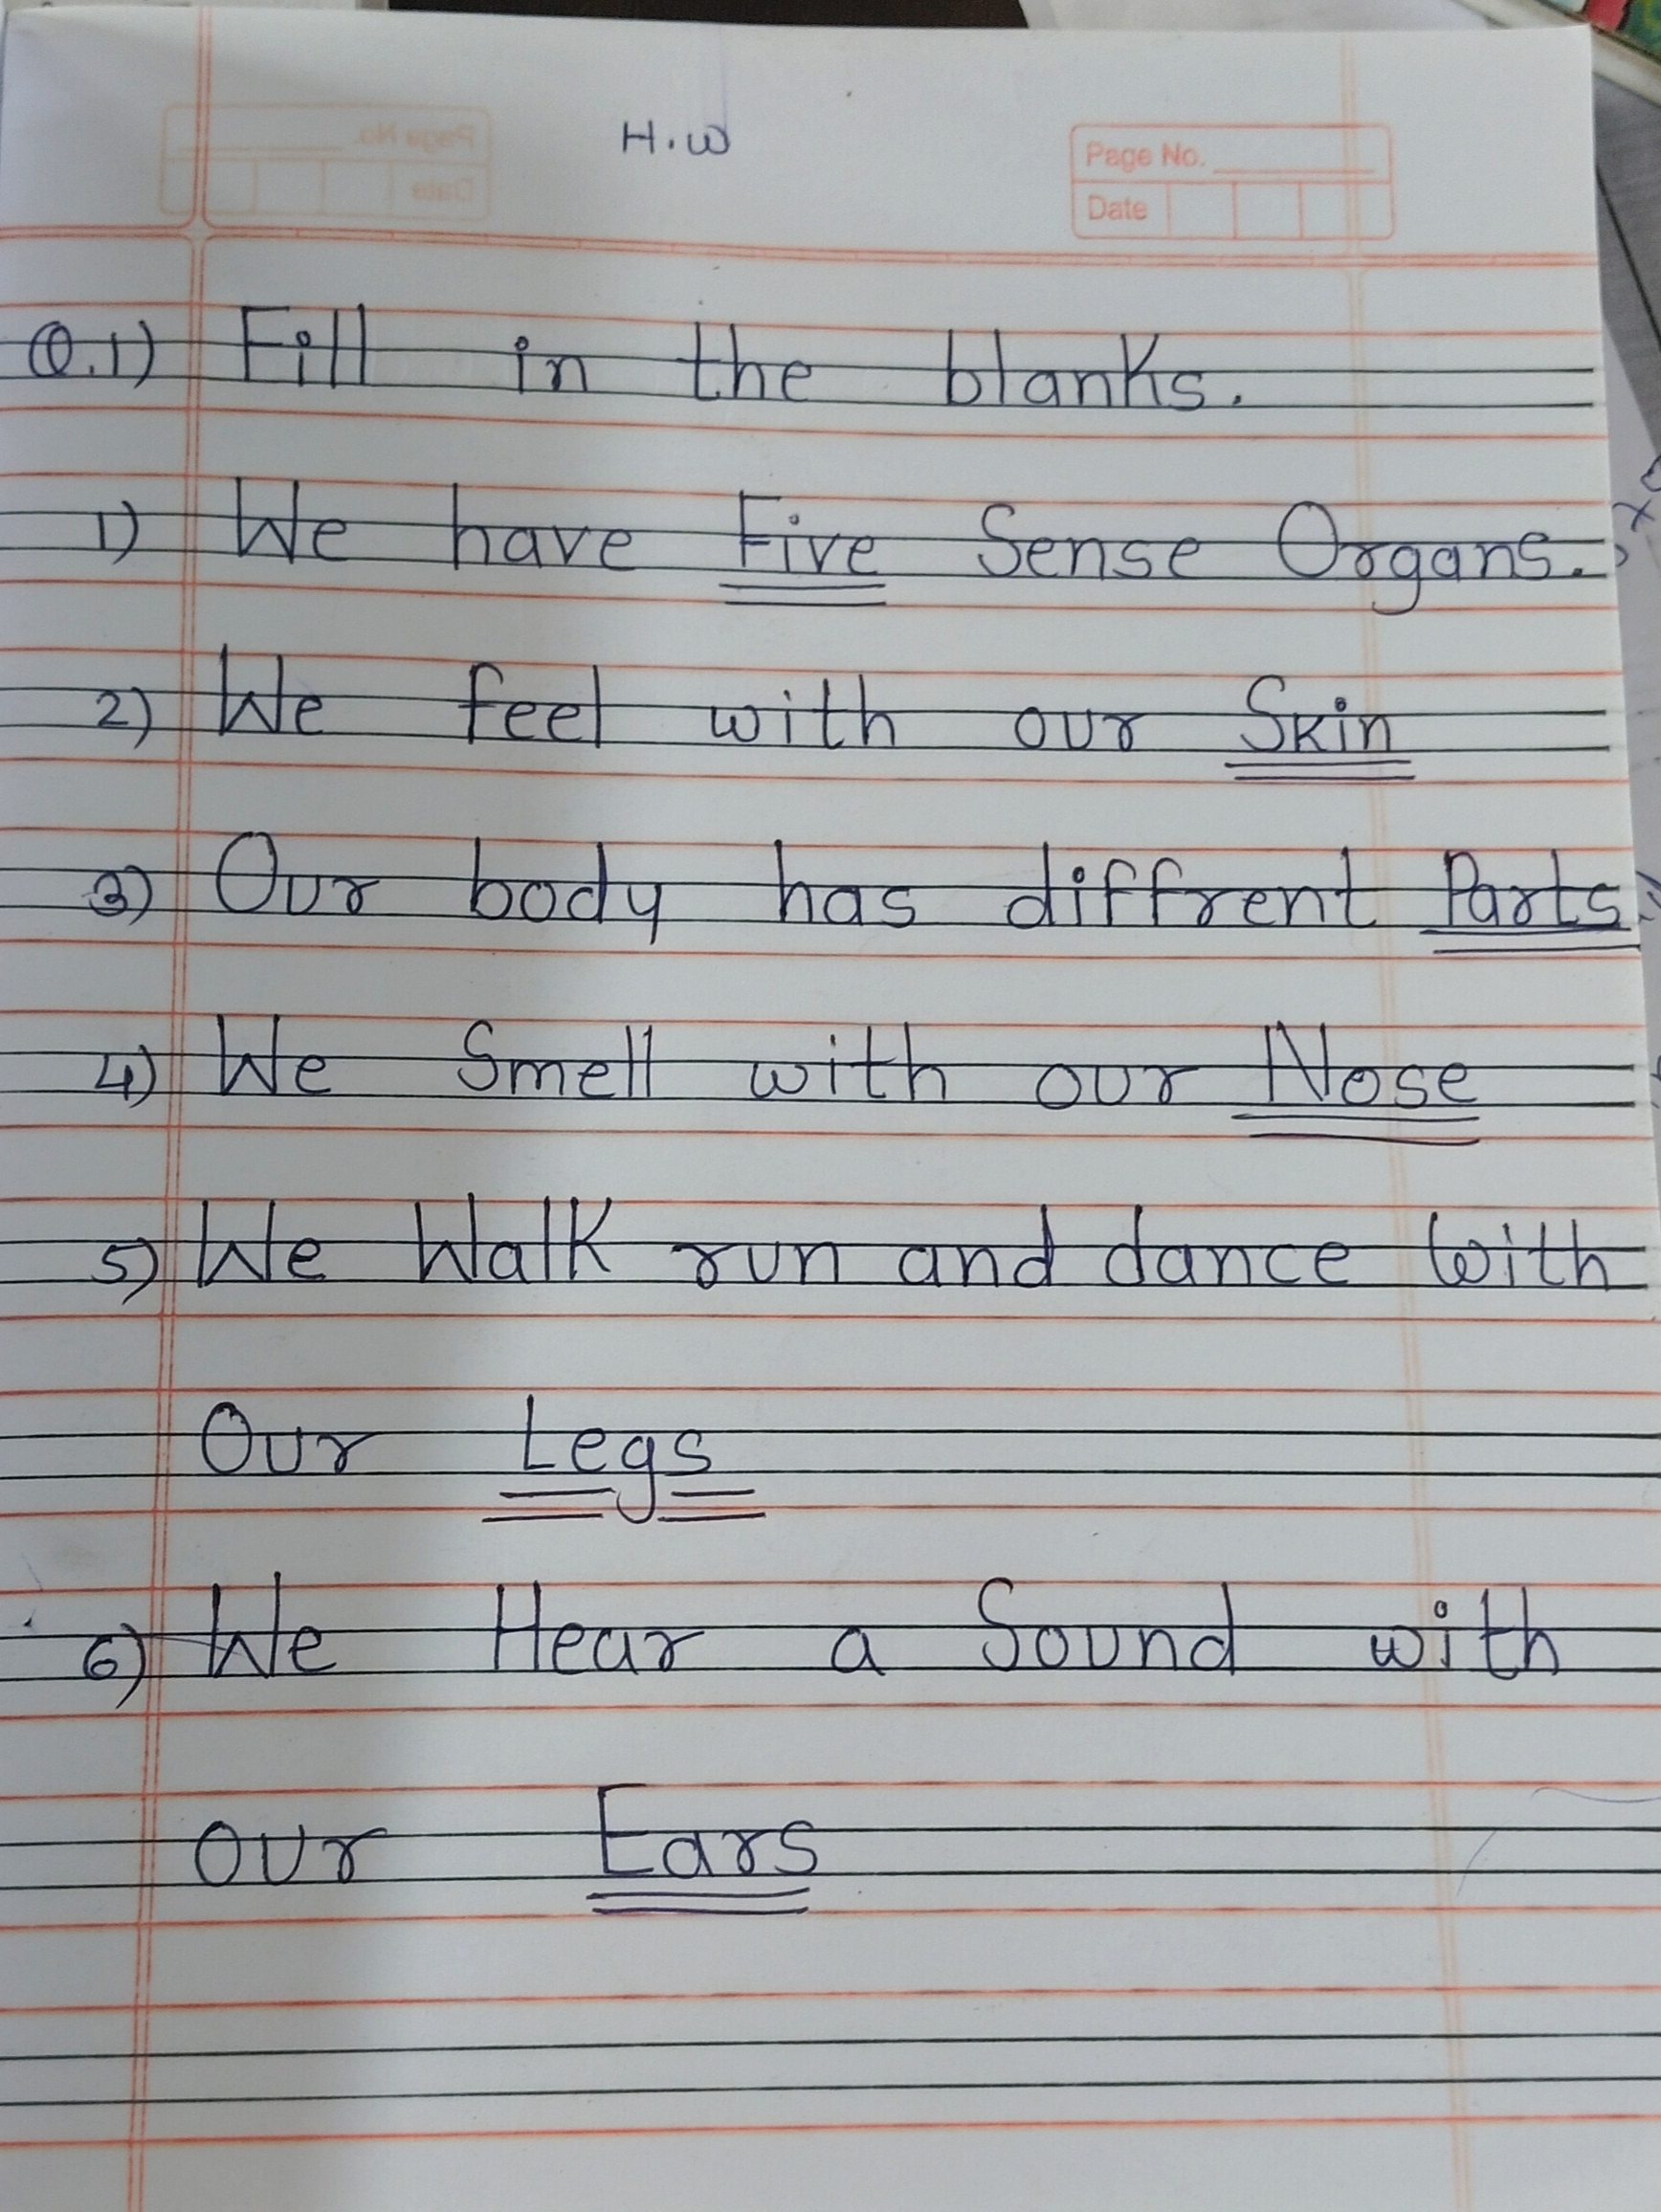 H.W
Page No.
Date
Q.1) Fill in the blanks.
1) We have Five Sense Organs.
2) We feel with our Skin
3) Our body has diffrent Parts.
4) We Smell with our Nose
5) We Walk run and dance with
Our Legs
6) We Hear a Sound with
our Ears